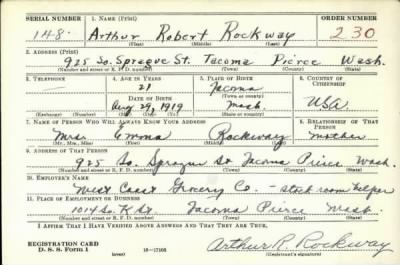 SERIAL NUMBER 1. NAME (Print) ORDER NUMBER
148 Arthur Robert Rockway 230
(First) (Middle) (Last)
2. ADDRESS (Print)
925 So. Sprague St. Tacoma Pierce Wash.
(Number and street or R. F. D. number) (Town) (County) (State)
3. TELEPHONE 4. AGE IN YEARS 5. PLACE OF BIRTH 6. COUNTRY OF CITIZENSHIP
— 21 Tacoma
DATE OF BIRTH (Town or county)
Aug 29, 1919 Wash. USA
(Exchange) (Number) (Mo.) (Day) (Yr.) (State or country)
7. NAME OF PERSON WHO WILL ALWAYS KNOW YOUR ADDRESS 8. RELATIONSHIP OF THAT PERSON
Mrs. Emma Rockway mother
(Mr., Mrs., Miss) (First) (Middle) (Last)
9. ADDRESS OF THAT PERSON
925 So. Sprague St Tacoma Pierce Wash.
(Number and street or R. F. D. number) (Town) (County) (State)
10. EMPLOYER'S NAME
West Coast Grocery Co. – stock room helper
11. PLACE OF EMPLOYMENT OR BUSINESS
1014 So. K St. Tacoma Pierce Wash.
(Number and street or R. F. D. number) (Town) (County) (State)
I AFFIRM THAT I HAVE VERIFIED ABOVE ANSWERS AND THAT THEY ARE TRUE.
REGISTRATION CARD
D. S. S. Form 1 16—17105 Arthur R. Rockway
(Registrant's signature)